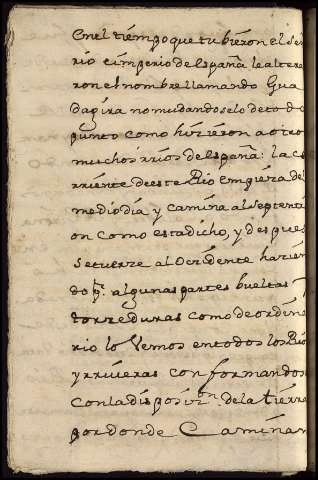 En el tiempo que tubieron el Señ
rio e imperio de españa le altera
ron el nombre llamando Gua
dagira no mudandoselo de todo
punto como hizieron a otro
muchos rrios de españa: la co
rriente de este Rio empieza de
medio dia y camina al septentri
on como esta dicho, y despues
se tuerze al Ocçidente hazien
do pr. algunas partes bueltas
torzeduras como de ordina
rio lo Vemos en todos los Rio
y rriueras conformandose
con la disposiçon. de la tierra
por donde Caminan